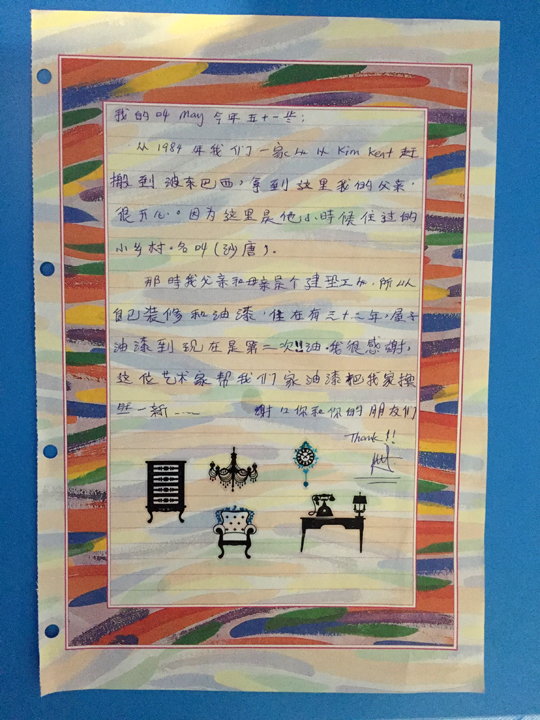 我的叫 May 今年五十一岁;
从 1984 年我们一家从 Kim Kent 赶
搬到波东巴西, 来到这里我的父亲.
很开心。因为这里是他小時候住过的
小乡村。名叫(沙唐).
那時我父亲和母亲是个建筑工人. 所以
自己装修和油漆. 住在有三十二年, 屋子
油漆到现在是第二次!!油. 我很感谢,
这位艺术家帮我们家油漆把我家换
然一新......  谢谢你和你的朋友们
Thank!!